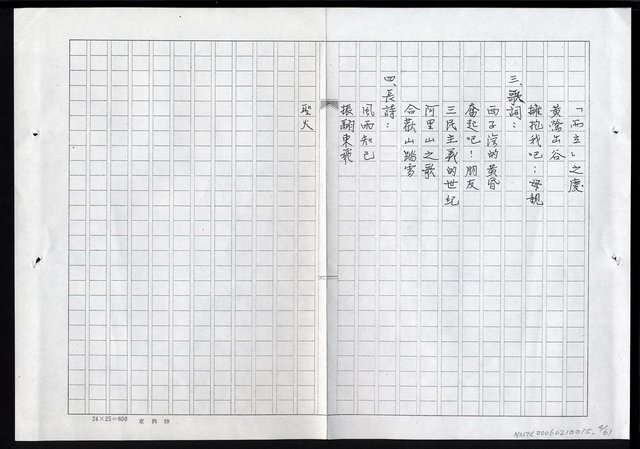 「而立」之慶
黃鶯出谷
擁抱我吧：母親
三、歌詞：
西子灣的黃昏
奮起吧！朋友
三民主義的世紀
阿里山之歌
合歡山踏雪
四、長詩：
風雨知己
振翮東飛
聖火
24×25=600
NMTL20050210015
9/61